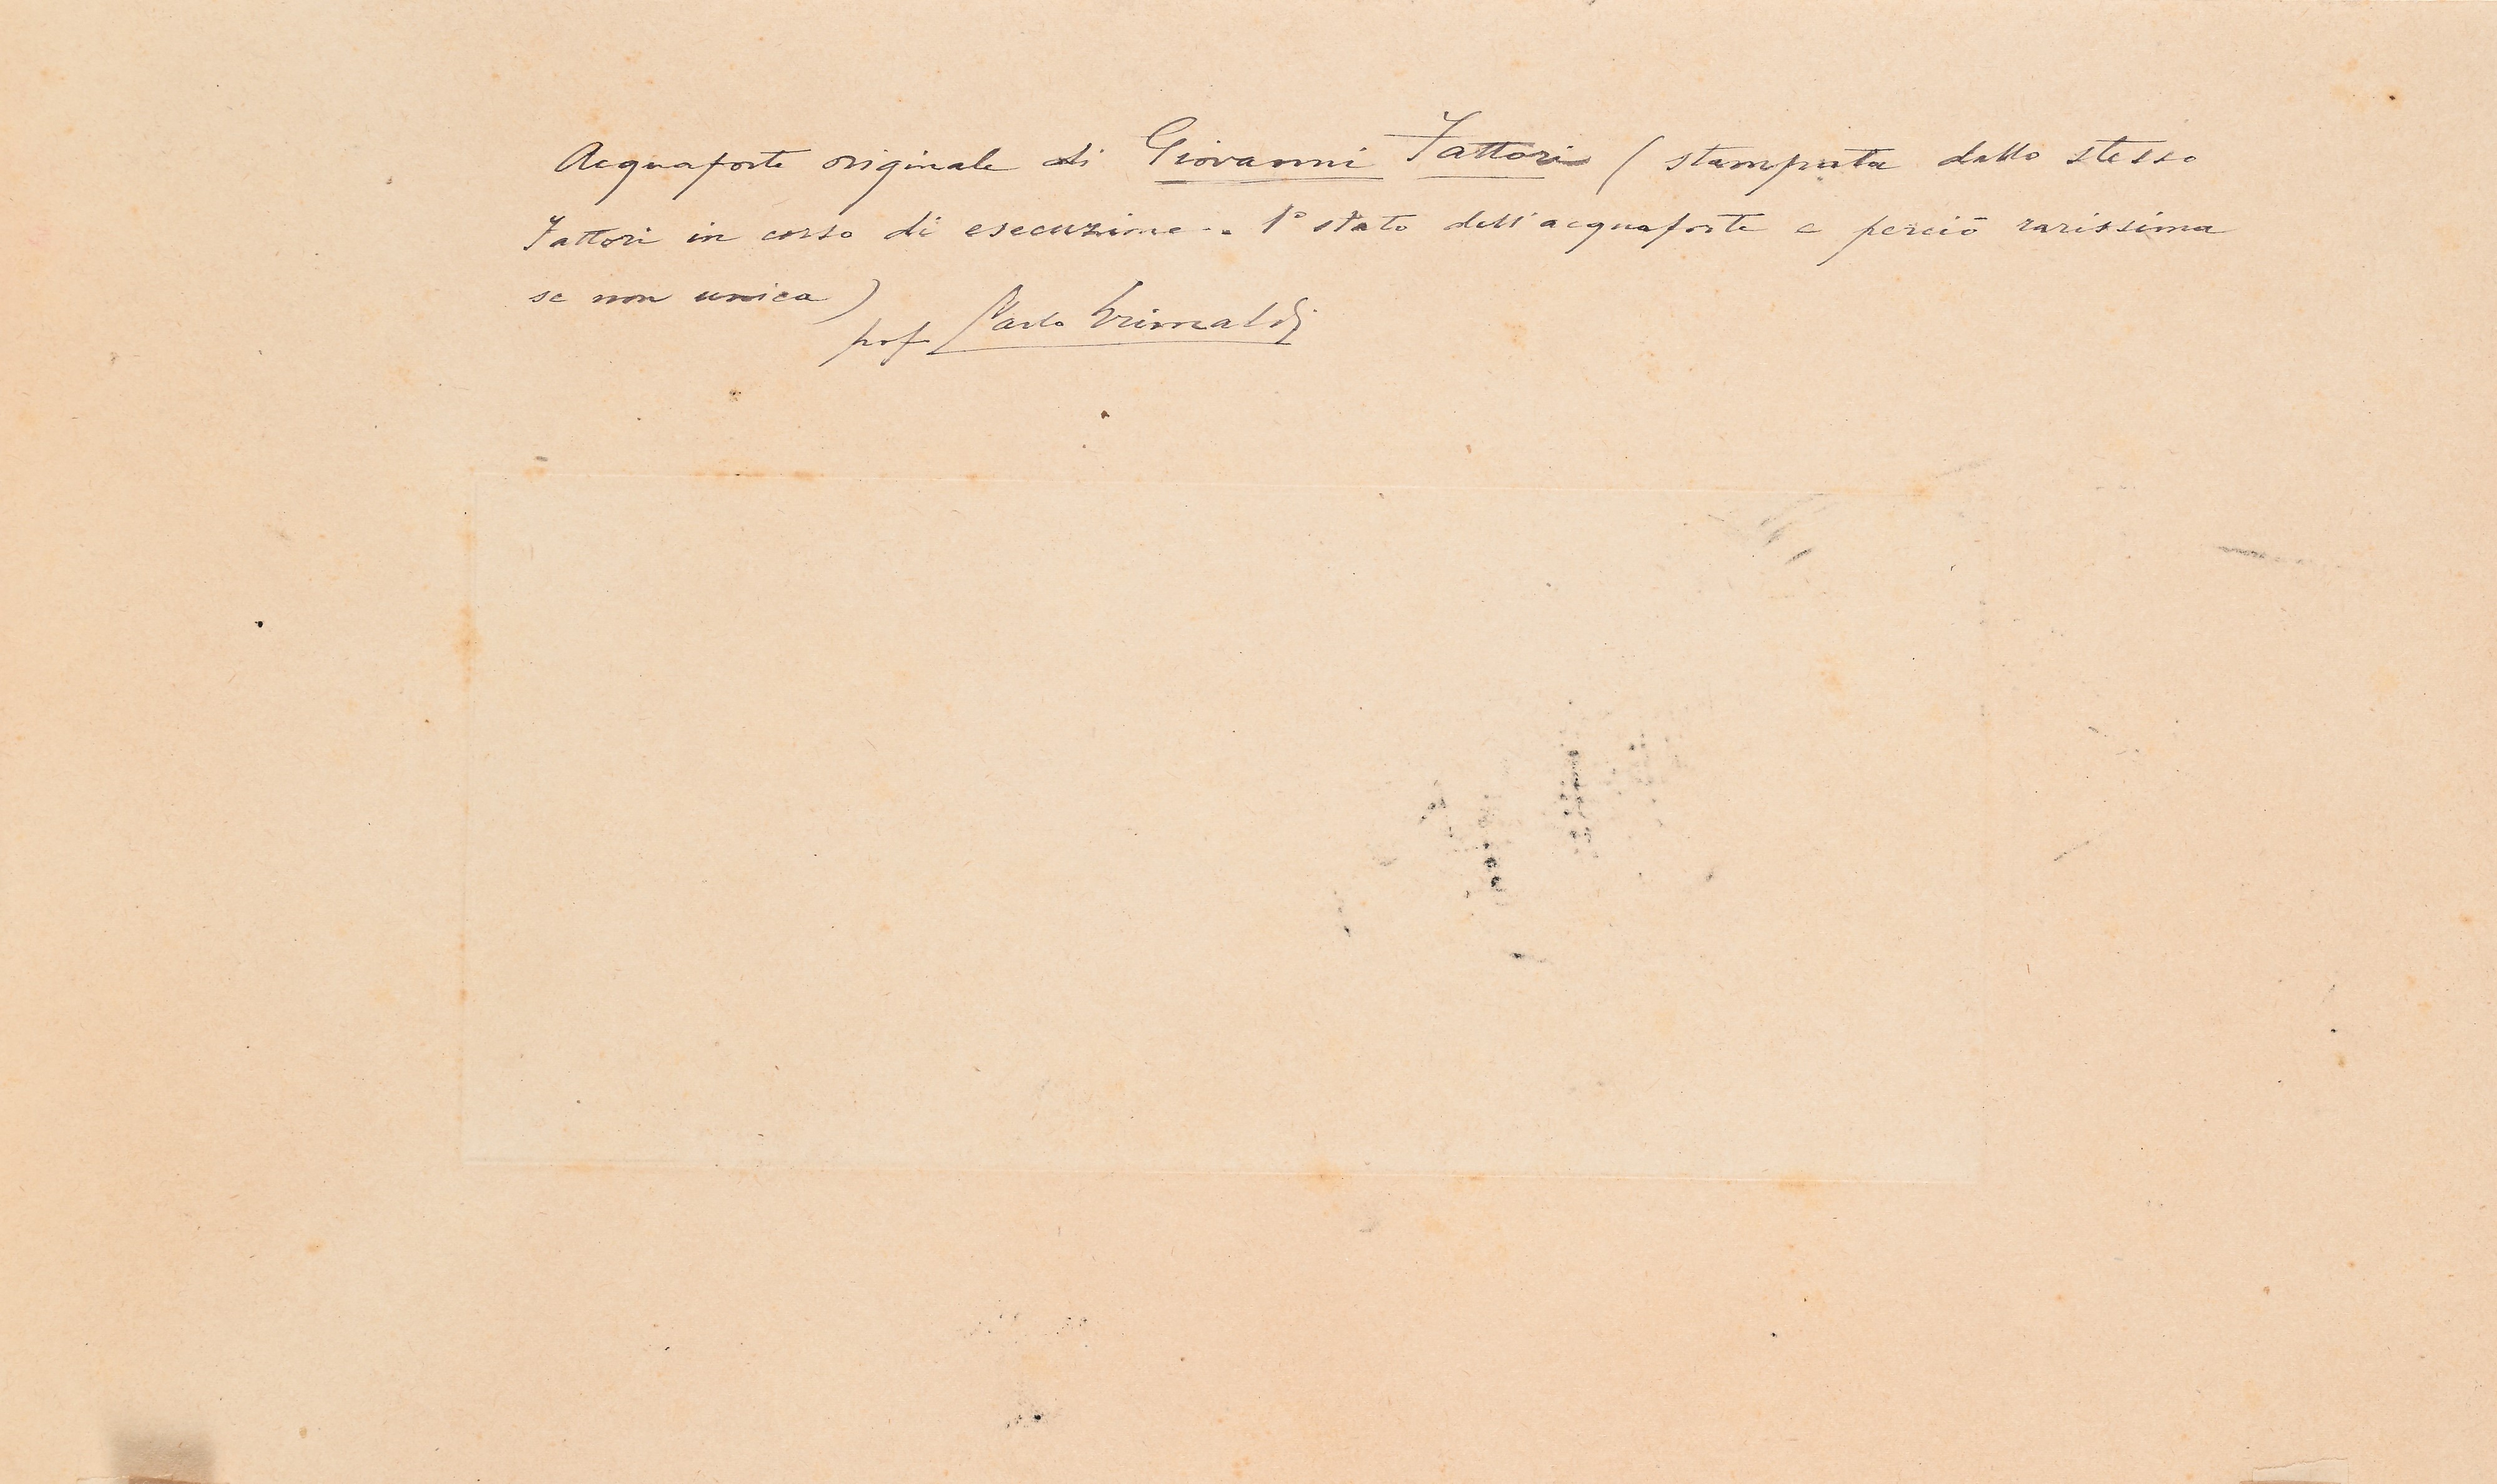 Acquaforte originale di Giovanni Fattori (stampata dallo stesso
Fattori in corso di esecuzione - 1° stato dell'acquaforte e perciò rarissima
se non unica)
prof Carlo Grimaldi